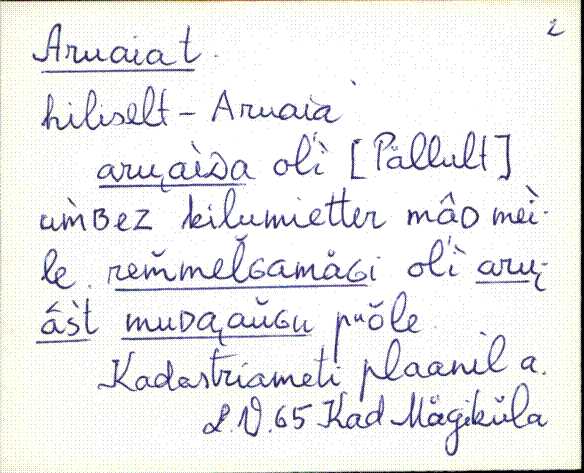 2
Aruaia t.
hiliselt – Aruaia
aru̬aìᴅa ol'ì [Pällult]
um̀ʙez kilumietter mâᴅ meì-
le. rem̆mel̆ɢamåɢi ol'ì aru̬-
âs̀t muᴅa̬aŭɢu puŏle.
Kadastriameti plaanil a.
L.V.65 Kad Mägiküla